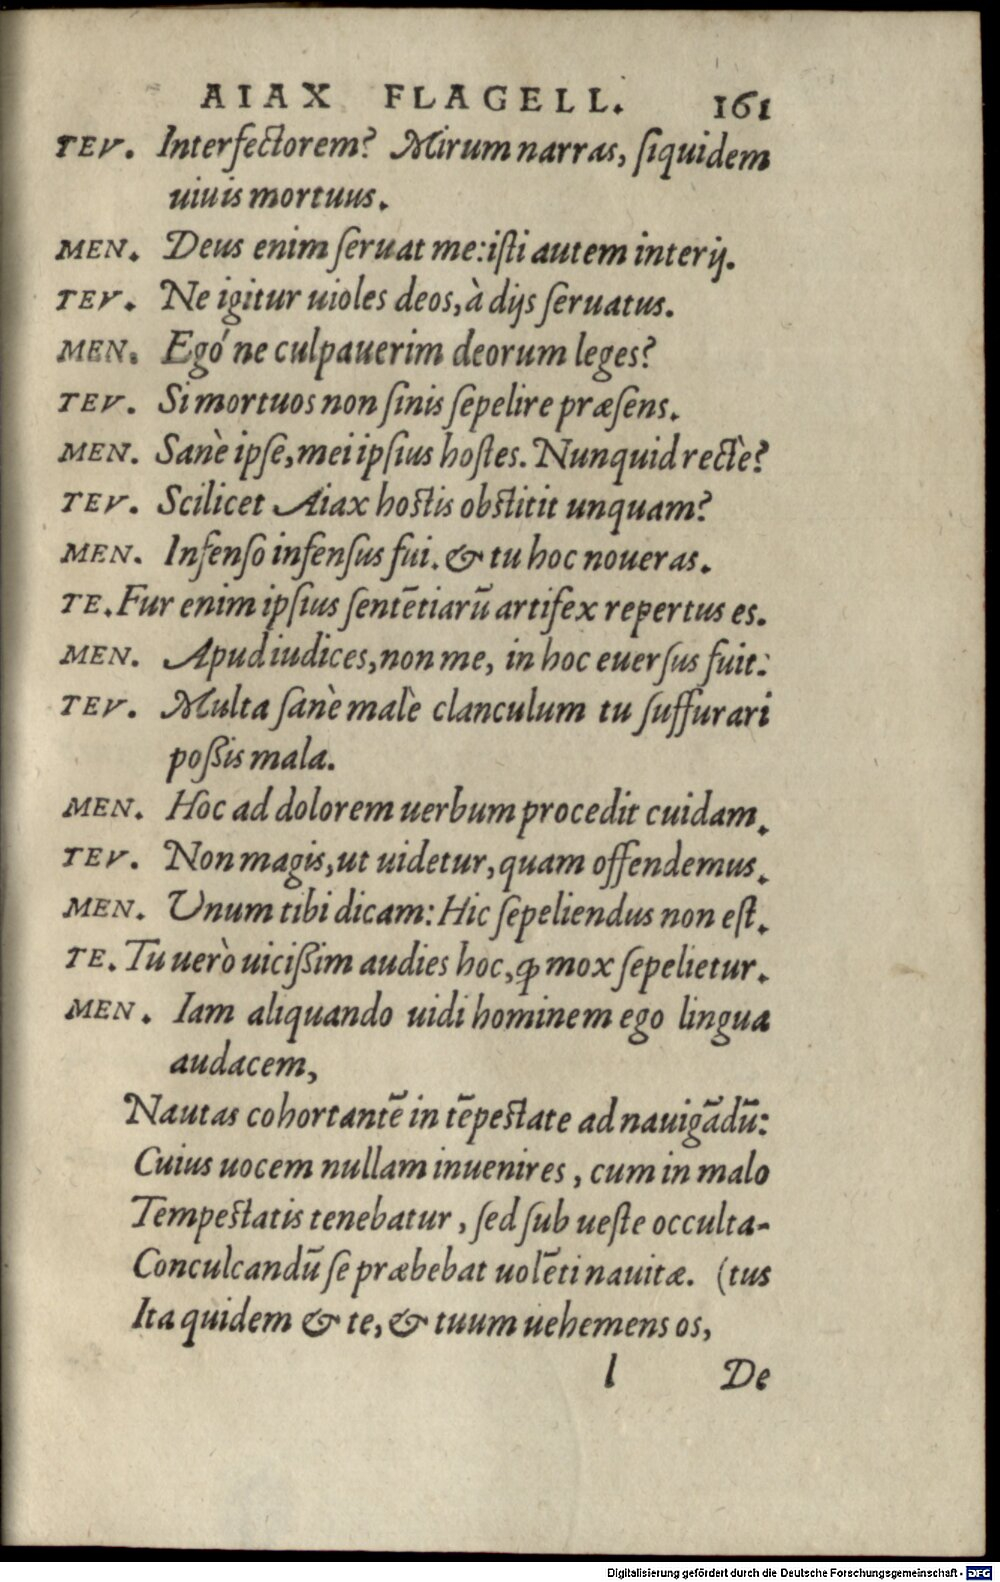 AIAX FLAGELL. 161
TEV. Interfectorem? Mirum narras, siquidem
uiuis mortuus.
MEN. Deus enim seruat me: isti autem interij.
TEV. Ne igitur uioles deos, à dijs seruatus.
MEN. Egó ne culpauerim deorum leges?
TEV. Si mortuos non sinis sepelire præsens.
MEN. Sanè ipse, mei ipsius hostes. Nunquid rectè?
TEV. Scilicet Aiax hostis obstitit unquam?
MEN. Infenso infensus fui. & tu hoc noueras.
TE. Fur enim ipsius sentētiarū artifex repertus es.
MEN. Apud iudices, non me, in hoc euersus fuit.
TEV. Multa sanè malè clanculum tu suffurari
poßis mala.
MEN. Hoc ad dolorem uerbum procedit cuidam.
TEV. Non magis, ut uidetur, quam offendemus.
MEN. Unum tibi dicam: Hic sepeliendus non est.
TE. Tu uerò uicißim audies hoc, ꝙ mox sepelietur.
MEN. Iam aliquando uidi hominem ego lingua
audacem,
Nautas cohortantē in tēpestate ad nauigādū:
Cuius uocem nullam inuenires, cum in malo
Tempestatis tenebatur, sed sub ueste occulta-
Conculcandū se præbebat uolēti nauitæ. (tus
Ita quidem & te, & tuum uehemens os,
l De
Digitalisierung gefördert durch die Deutsche Forschungsgemeinschaft - DFG